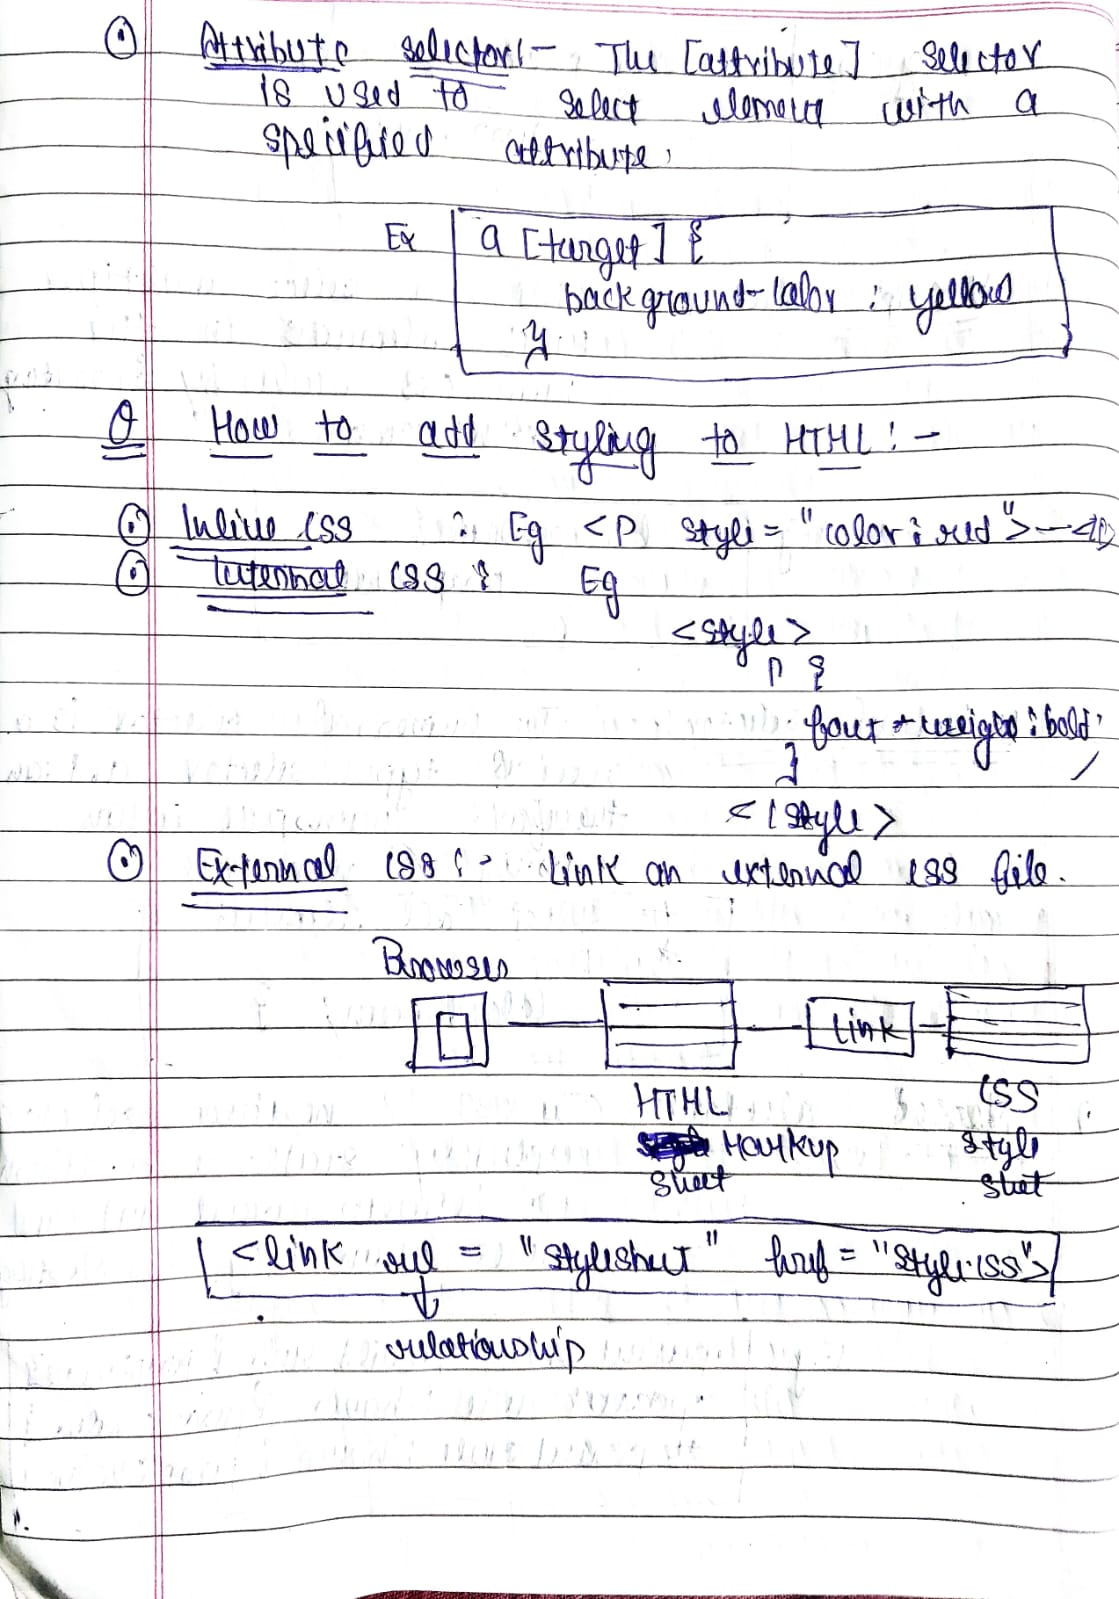 Attribute selector:- The [attribute] selector
is used to select element with a
specified attribute.
Ex a [target] {
background-color : yellow
}
Q How to add styling to HTML :-
Inline CSS : Eg <p style = "color : red">
Internal CSS : Eg
<style>
p {
font-weight : bold;
}
</style>
External CSS :- Link an external CSS file.
Browser
Link
HTML CSS
Markup style
Sheet Sheet
<link rel = "stylesheet" href = "style.css">
relationship